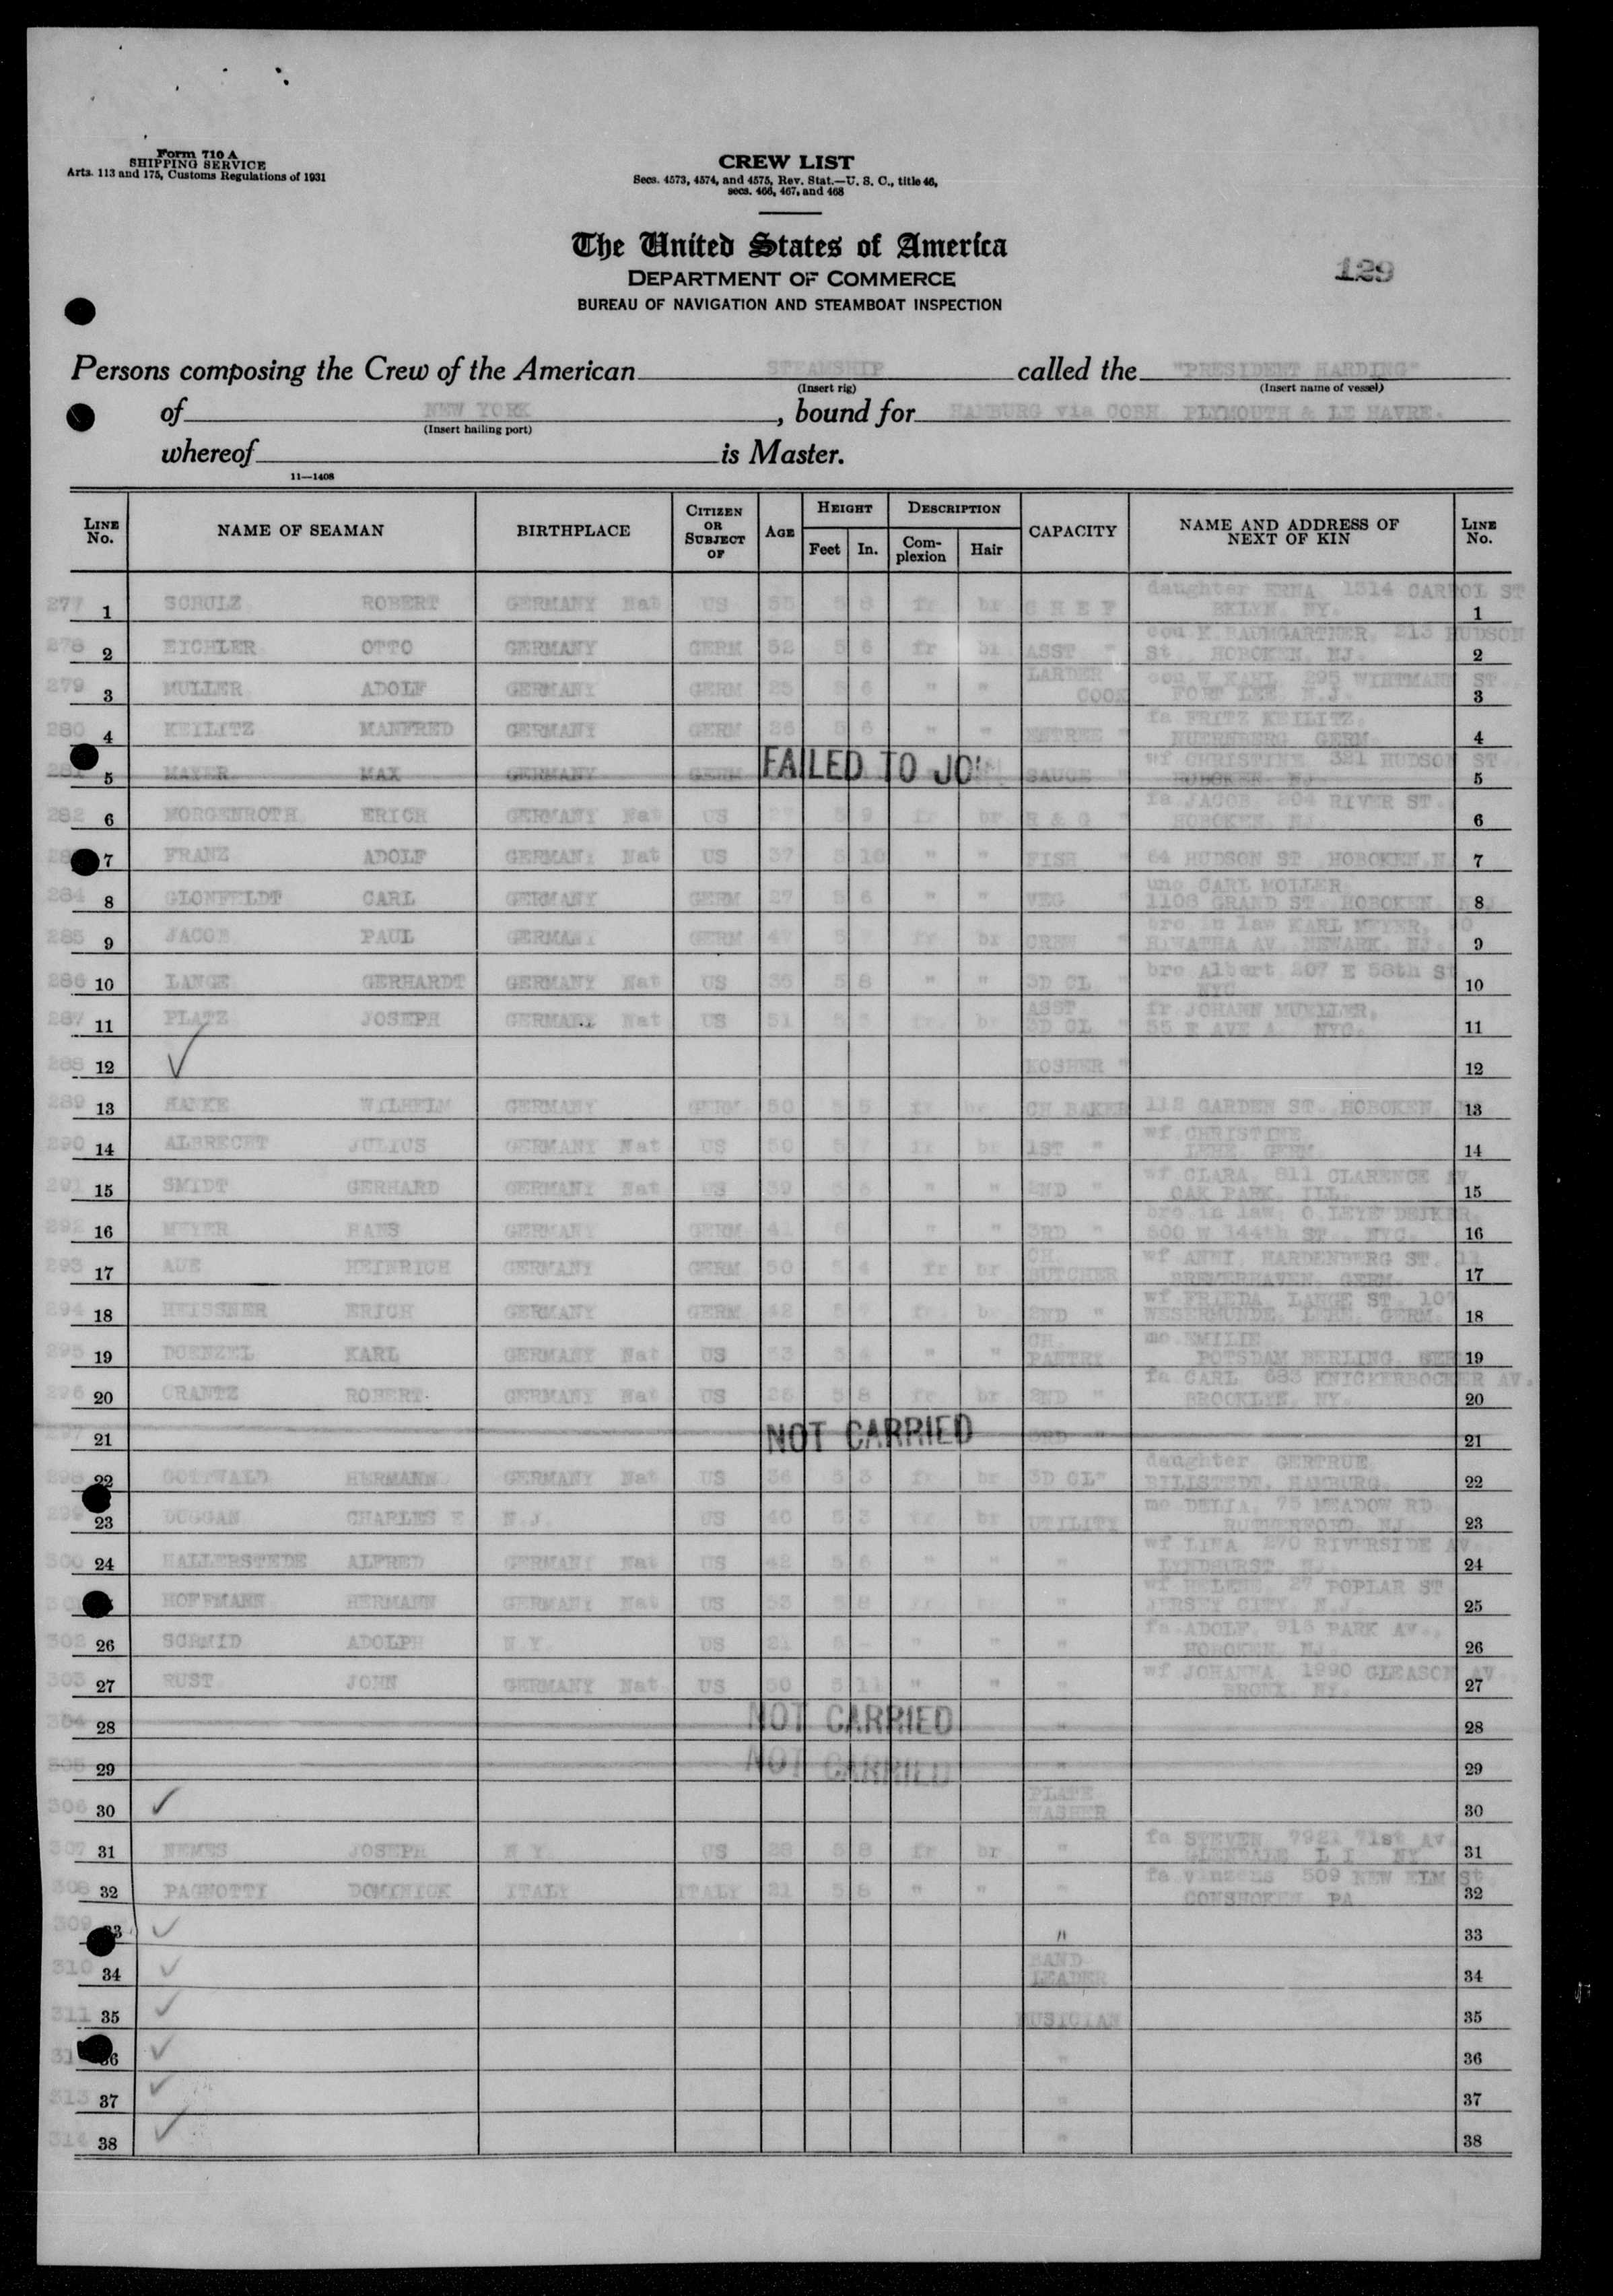 Form 710 A
SHIPPING SERVICE
Arts. 113 and 175, Customs Regulations of 1931
CREW LIST
Secs. 4573, 4574, and 4575, Rev. Stat.—U. S. C., title 46,
secs. 466, 467, and 468
The United States of America
DEPARTMENT OF COMMERCE
BUREAU OF NAVIGATION AND STEAMBOAT INSPECTION
129
Persons composing the Crew of the American STEAMSHIP called the "PRESIDENT HARDING"
(Insert rig) (Insert name of vessel)
of NEW YORK, bound for HAMBURG via COBH PLYMOUTH & LE HAVRE.
(Insert hailing port)
whereof is Master.
11—1408
LINE No. NAME OF SEAMAN BIRTHPLACE CITIZEN OR SUBJECT OF AGE HEIGHT Feet In. DESCRIPTION Complexion Hair CAPACITY NAME AND ADDRESS OF NEXT OF KIN LINE No.
277 1 SCHULZ ROBERT GERMANY Nat US 55 5 8 fr br CHEF daughter ERNA 1314 CARROL ST BKLYN. NY. 1
278 2 EICHLER OTTO GERMANY GERM 52 5 6 fr bl ASST " K. BAUMGARTNER, 213 HUDSON St. HOBOKEN, NJ. 2
279 3 MULLER ADOLF GERMANY GERM 25 5 6 " " LARDER COOK W KAHL 295 ST. FORT LEE N.J. 3
280 4 KEILITZ MANFRED GERMANY GERM 26 5 6 " " ENTREE " fa FRITZ KEILITZ, NUERNBERG GERM. 4
281 5 MAYER MAX GERMANY GERM FAILED TO JOIN SAUCE " wf CHRISTINE 321 HUDSON ST HOBOKEN NJ 5
282 6 MORGENROTH ERICH GERMANY Nat US 27 5 9 fr br R & G " fa JACOB 204 RIVER ST. HOBOKEN, NJ. 6
7 FRANZ ADOLF GERMANY Nat US 37 5 10 " " FISH " 64 HUDSON ST HOBOKEN N 7
284 8 GLONFELDT CARL GERMANY GERM 27 5 6 " " VEG " unc CARL MOLLER 1108 GRAND ST HOBOKEN NJ. 8
285 9 JACOB PAUL GERMANY GERM 47 5 7 fr br CREW " bro in law KARL MEYER, HIWATHA AV. NEWARK, NJ. 9
286 10 LANGE GERHARDT GERMANY Nat US 35 5 8 " " 3D CL " bro Albert 207 E 58th St NYC 10
287 11 PLATZ JOSEPH GERMANY Nat US 51 5 5 fr br ASST 3D CL " fr JOHANN MUELLER, 55 E AVE A NYC. 11
288 12 ✓ KOSHER " 12
289 13 HANKE WILHELM GERMANY GERM 50 5 5 fr br CH BAKER 112 GARDEN ST. HOBOKEN 13
290 14 ALBRECHT JULIUS GERMANY Nat US 50 5 7 fr br 1ST " wf CHRISTINE LEHE GERM. 14
291 15 SMIDT GERHARD GERMANY Nat US 39 5 6 " " 2ND " wf CLARA, 811 CLARENCE AV OAK PARK, ILL. 15
292 16 MEYER HANS GERMANY GERM 41 6 " " 3RD " bro in law, O 600 W 144th ST. NYC. 16
293 17 AUE HEINRICH GERMANY GERM 50 5 4 fr br CH. BUTCHER wf ANNI, HARDENBERG ST. 11 BREMERHAVEN, GERM. 17
294 18 HEISSNER ERICH GERMANY GERM 42 5 7 fr br 2ND " wf FRIEDA LANGE ST. 107 WESERMUNDE, LEHE, GERM. 18
295 19 DOENZEL KARL GERMANY Nat US 53 5 4 " " CH. PANTRY mo EMILIE POTSDAM BERLING, GER 19
296 20 CRANTZ ROBERT GERMANY Nat US 28 5 8 fr br 2ND " fa CARL 683 KNICKERBOCKER AV. BROOKLYN, NY. 20
297 21 NOT CARRIED 3RD " 21
298 22 GOTTWALD HERMANN GERMANY Nat US 36 5 3 fr br 3D CL" daughter GERTRUE BILLSTEDT, HAMBURG. 22
299 23 DUGGAN CHARLES E N.J. US 40 5 3 fr br UTILITY mo DELIA, 75 MEADOW RD RUTHERFORD, NJ 23
300 24 HALLERSTEDE ALFRED GERMANY Nat US 42 5 6 " " " wf LINA 270 RIVERSIDE AV. LYNDHURST, NJ. 24
HOFFMANN HERMANN GERMANY Nat US 53 5 8 fr br " wf HELENE 27 POPLAR ST JERSEY CITY, N.J. 25
302 26 SCHMID ADOLPH N.Y. US 21 6 - " " " fa ADOLF, 915 PARK AV., HOBOKEN, NJ. 26
303 27 RUST JOHN GERMANY Nat US 50 5 11 " " " wf JOHANNA 1990 GLEASON AV. BRONX, NY. 27
304 28 NOT CARRIED " 28
305 29 NOT CARRIED " 29
306 30 ✓ PLATE WASHER 30
307 31 NEMES JOSEPH N Y US 28 5 8 fr br " fa STEVEN 7921 71st AV GLENDALE L I NY 31
308 32 PAGNOTTI DOMINICK ITALY ITALY 21 5 8 " " " fa Vinzens 509 NEW ELM St CONSHOKEN PA 32
309 33 ✓ " 33
310 34 ✓ BAND LEADER 34
311 35 ✓ MUSICIAN 35
36 ✓ " 36
313 37 ✓ " 37
314 38 ✓ " 38